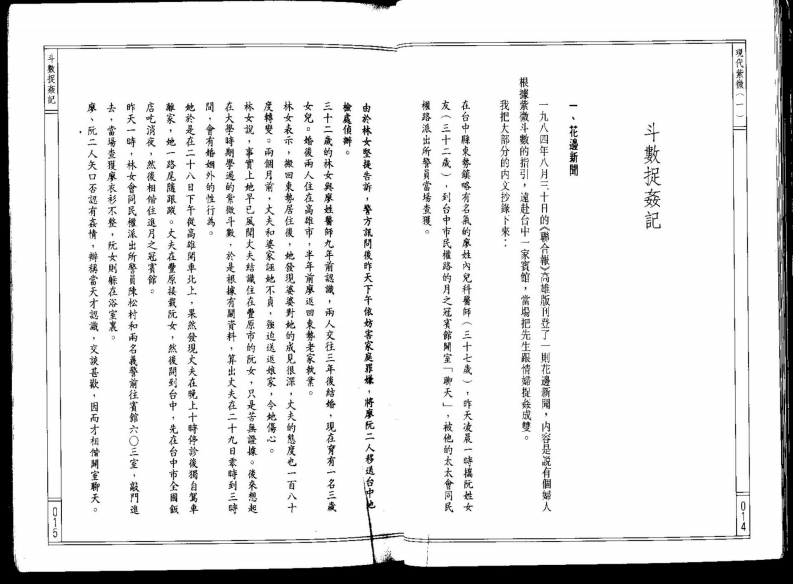 現代紫微（一）
斗數捉姦記
一、花邊新聞
一九八四年八月三十日的《聯合報》高雄版刊登了一則花邊新聞，內容是說有個婦人
根據紫微斗數的指引，遠赴台中一家賓館，當場把先生跟情婦捉姦成雙。
我把大部分的內文抄錄下來：
在台中縣東勢鎮略有名氣的廖姓內兒科醫師（三十七歲），昨天凌晨一時攜阮姓女
友（三十二歲），到台中市民權路的月之冠賓館開室「聊天」，被他的太太會同民
權路派出所警員當場查獲。
014
由於林女堅提告訴，警方訊問後昨天下午依妨害家庭罪嫌，將廖阮二人移送台中地
檢處偵辦。
三十二歲的林女與廖姓醫師九年前認識，兩人交往三年後結婚，現在育有一名三歲
女兒。婚後兩人住在高雄市，半年前廖返回東勢老家執業。
林女表示，搬回東勢居住後，她發現婆婆對她的成見很深，丈夫的態度也一百八十
度轉變。兩個月前，丈夫和婆家誣她不貞，強迫送返娘家，令她傷心。
林女說，事實上她早已風聞丈夫結識住在豐原市的阮女，只是苦無證據。後來想起
在大學時期學過的紫微斗數，於是根據有關資料，算出丈夫在二十九日零時到三時
間，會有婚姻外的性行為。
她於是在二十八日下午從高雄開車北上，果然發現丈夫在晚上十時停診後獨自駕車
離家，她一路尾隨跟蹤。丈夫在豐原接載阮女，然後開到台中，先在台中市全國飯
店吃消夜，然後相偕住進月之冠賓館。
昨天一時，林女會同民權派出所警員陳松村和兩名義警前往賓館六〇三室，敲門進
去，當場查獲廖衣衫不整，阮女則躲在浴室裏。
廖、阮二人矢口否認有姦情，辯稱當天才認識，交談甚歡，因而才相偕開室聊天。
斗數捉姦記
015